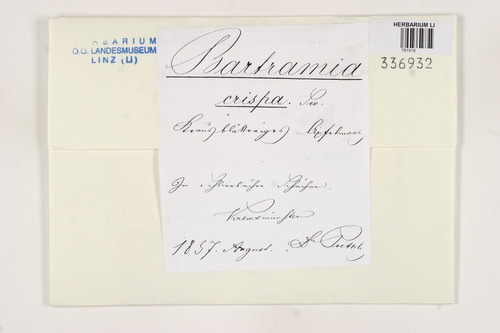 HERBARIUM
O.Ö. LANDESMUSEUM
LINZ (LI)
HERBARIUM LI
336932
Bartramia
crispa. Sw.
Krausblättriges Apfelmoos
Kremsmünster
1857. August. Dr Poetsch